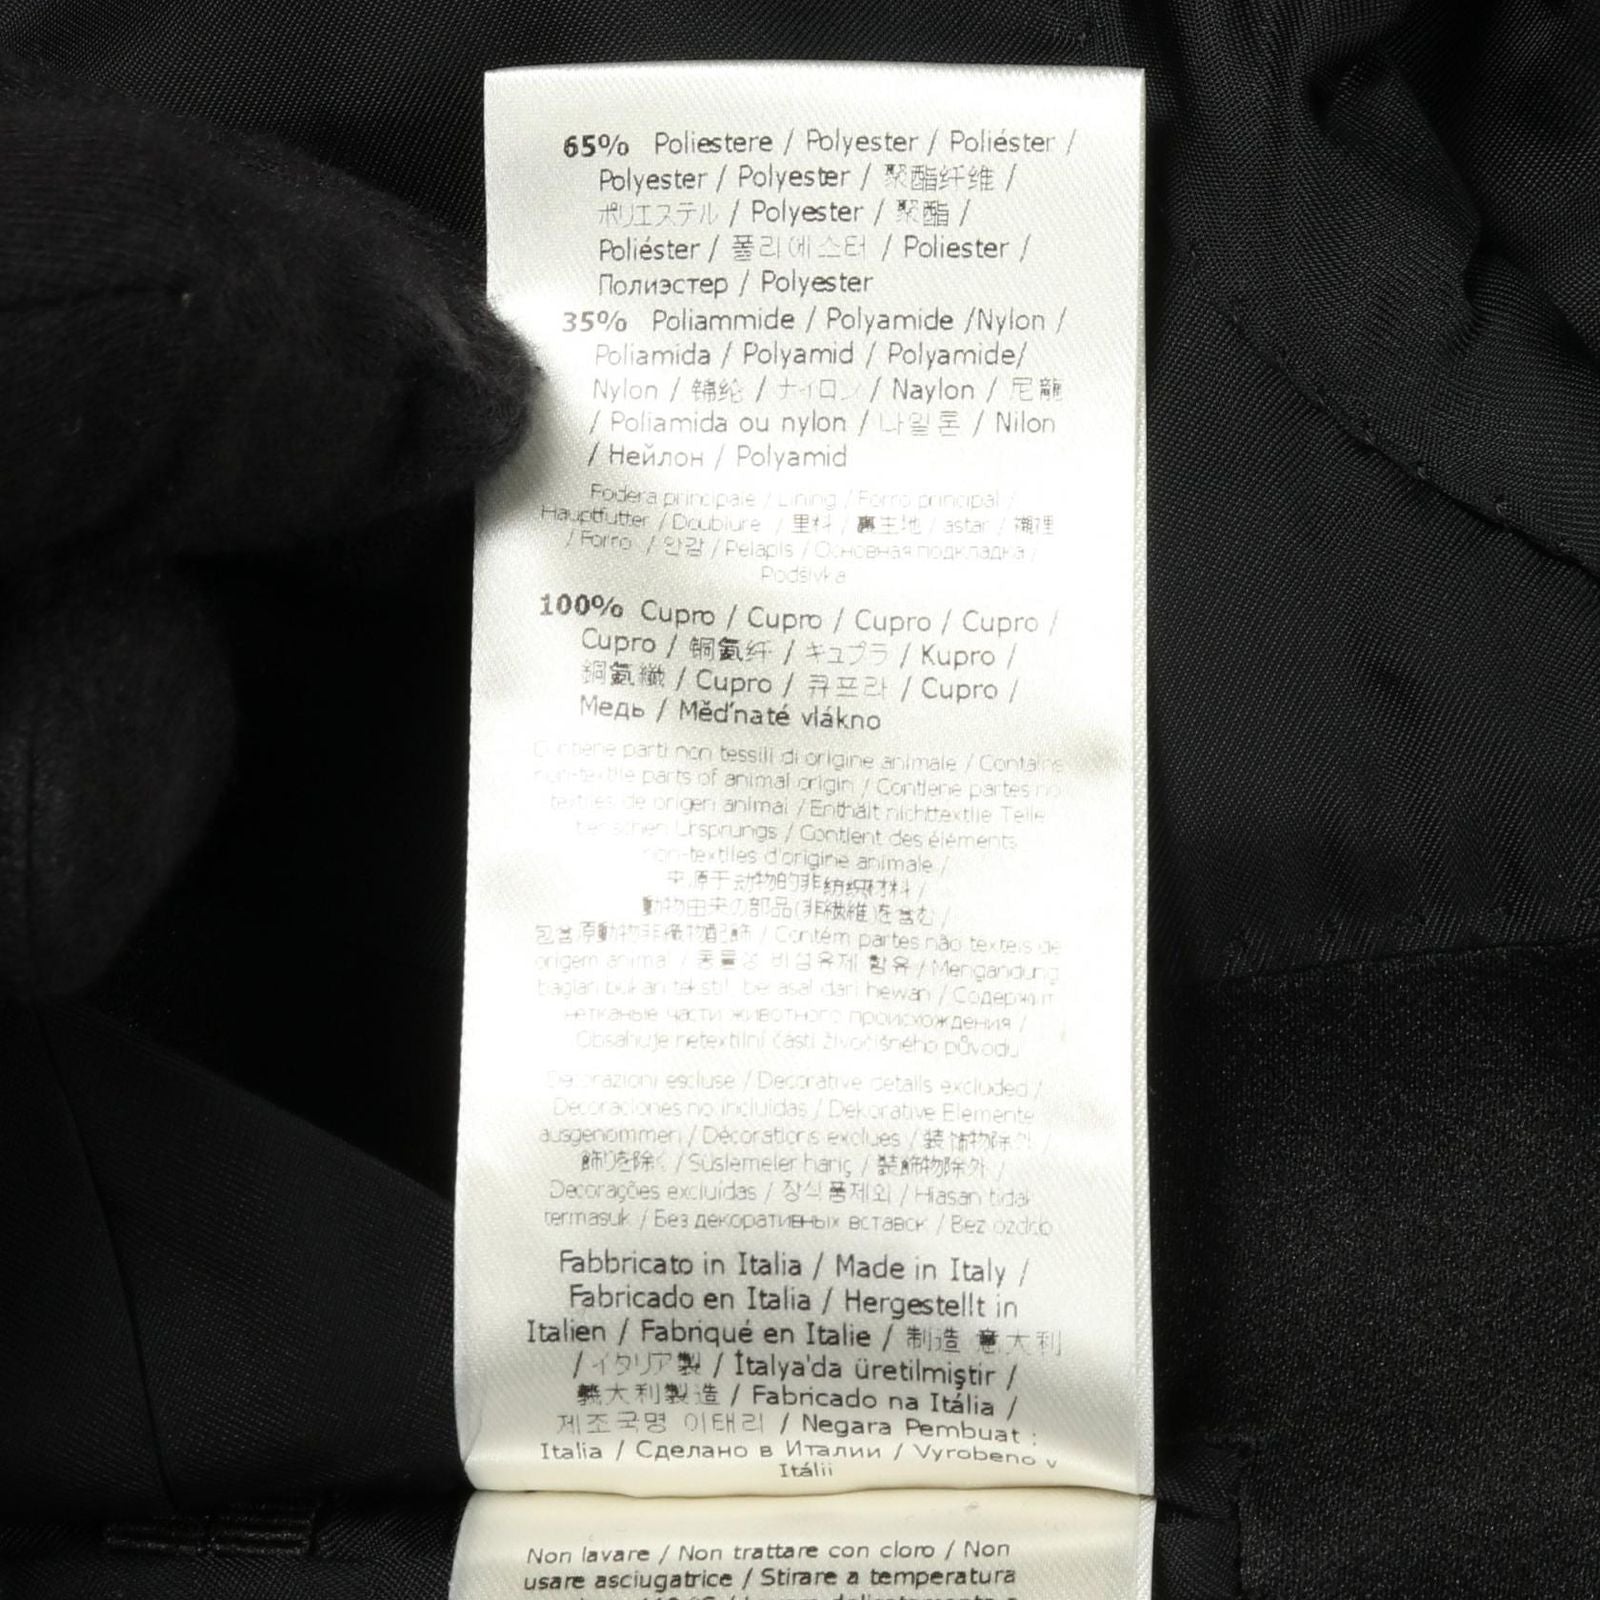 65% Poliestere / Polyester / Poliéster /
Polyester / Polyester / 聚酯纤维 /
ポリエステル / Polyester / 聚酯 /
Poliéster / 폴리에스터 / Poliester /
Полиэстер / Polyester
35% Poliammide / Polyamide /Nylon /
Poliamida / Polyamid / Polyamide/
Nylon / 锦纶 / ナイロン / Naylon / 尼龍
/ Poliamida ou nylon / 나일론 / Nilon
/ Нейлон / Polyamid
Fodera principale / Lining / Forro principal /
Hauptfutter / Doublure / 里料 / 裏生地 / astar / 襯裡
/ Forro / 안감 / Pelapis / Основная подкладка /
Podšívka
100% Cupro / Cupro / Cupro / Cupro /
Cupro / 铜氨纤 / キュプラ / Kupro /
銅氨纖 / Cupro / 큐프라 / Cupro /
Медь / Měďnaté vlákno
Contiene parti non tessili di origine animale / Contains
non-textile parts of animal origin / Contiene partes no
textiles de origen animal / Enthält nichttextile Teile
tierischen Ursprungs / Contient des éléments
non-textiles d'origine animale /
源于动物的非纺织材料 /
動物由来の部品(非繊維)を含む /
包含原動物非織物配飾 / Contém partes não têxteis de
origem animal / 동물성 비섬유제 함유 / Mengandung
bagian bukan tekstil berasal dari hewan / Содержит
нетканые части животного происхождения /
Obsahuje netextilní části živočišného původu
Decorazioni escluse / Decorative details excluded /
Decoraciones no incluidas / Dekorative Elemente
ausgenommen / Décorations exclues / 装饰物除外 /
飾りを除く / Süslemeler hariç / 裝飾物除外 /
Decorações excluídas / 장식품제외 / Hiasan tidak
termasuk / Без декоративных вставок / Bez ozdob
Fabbricato in Italia / Made in Italy /
Fabricado en Italia / Hergestellt in
Italien / Fabriqué en Italie / 制造 意大利
/ イタリア製 / İtalya'da üretilmiştir /
義大利製造 / Fabricado na Itália /
제조국명 이태리 / Negara Pembuat :
Italia / Сделано в Италии / Vyrobeno v
Itálii
Non lavare / Non trattare con cloro / Non
usare asciugatrice / Stirare a temperatura